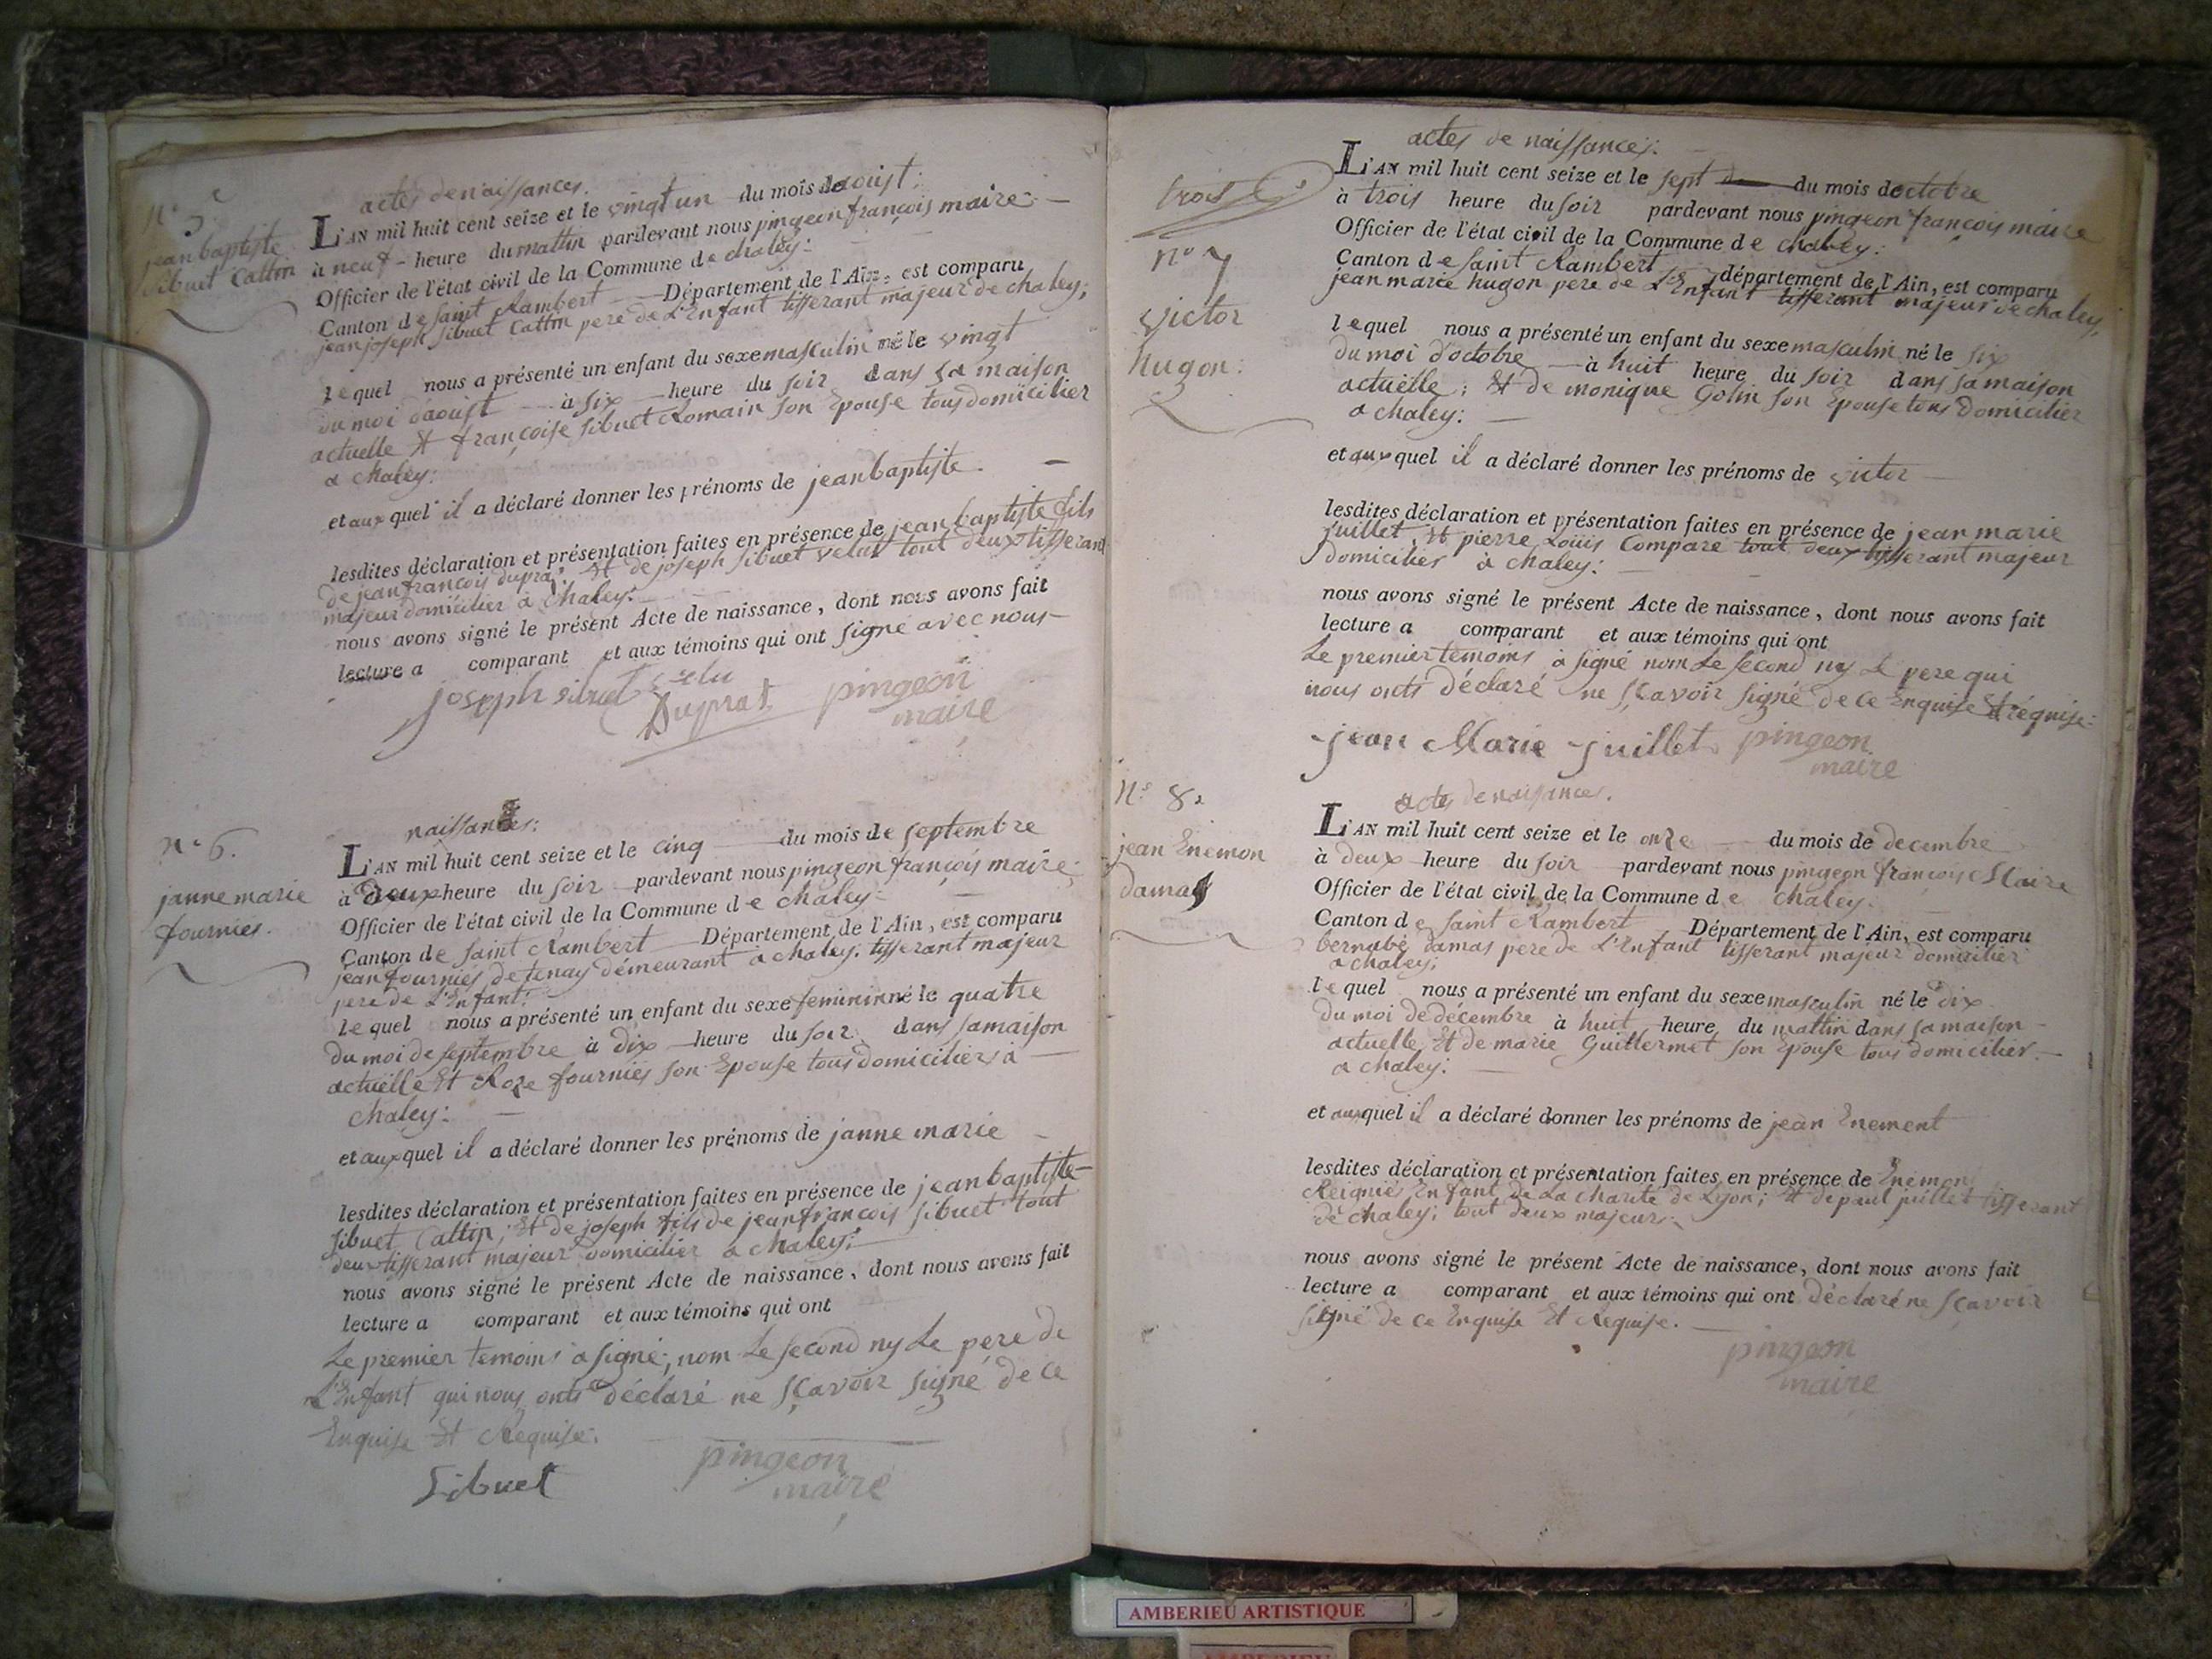 actes de naissances.
N° 5
jean baptiste
Sibuet Cattin
L'AN mil huit cent seize et le vingt un du mois de aoust:
à neuf - heure du mattin pardevant nous pingeon françois maire: -
Officier de l'état civil de la Commune de chaley:
Canton de saint Rambert Département de l'Ain, est comparu
jean joseph sibuet Cattin pere de L'Enfant tisserant majeur de chaley;
lequel nous a présenté un enfant du sexe masculin né le vingt
du moi daoust - à six - heure du soir dans sa maison
actuelle Et françoise sibuet Romain son Epouse tous domicilier
a chaley:
et auxquel il a déclaré donner les prénoms de jean baptiste. -
lesdites déclaration et présentation faites en présence de jean baptiste fils
de jean françois dupra: Et de joseph sibuet velat tout deux tisserand
majeur domicilier a Chaley:
nous avons signé le présent Acte de naissance, dont nous avons fait
lecture a comparant et aux témoins qui ont signé avec nous -
joseph sibuet
Duprat pingeon
maire
naissances:
n° 6.
janne marie
fourniés.
L'AN mil huit cent seize et le cinq du mois de septembre
à deux heure du soir pardevant nous pingeon françois maire;
Officier de l'état civil de la Commune de chaley:
Canton de saint Rambert Département de l'Ain, est comparu
jean fourniés de tenay démeurant a chaley: tisserant majeur
pere de L'Enfant:
lequel nous a présenté un enfant du sexe femininné le quatre
du moi de septembre à dix heure du soir dans sa maison
actuëlle Et Roze fourniés son Epouse tous domiciliers à
chaley: -
et auxquel il a déclaré donner les prénoms de janne marie -
lesdites déclaration et présentation faites en présence de jean baptiste
sibuet Cattin; Et de joseph fils de jean françois sibuet tout
deux tisserant majeur domicilier a chaley:
nous avons signé le présent Acte de naissance, dont nous avons fait
lecture a comparant et aux témoins qui ont
Le premier temoins a signé; nom Le second ny Le pere de
L'Enfant qui nous onts déclaré ne sçavoir signé de ce
Enquise Et Requise:
Sibuet
pingeon
maire
actes de naissances:
trois
n° 7
victor
hugon:
L'AN mil huit cent seize et le sept du mois doctobre
à trois heure du soir pardevant nous pingeon françois maire
Officier de l'état civil de la Commune de chaley:
Canton de saint Rambert département de l'Ain, est comparu
jean marie hugon pere de L'Enfant tisserant majeur de chaley,
lequel nous a présenté un enfant du sexe masculin né le six
du moi d'octobre - à huit heure du soir dans sa maison
actuëlle; Et de monique Golin son Epouse tous domicilier
a chaley: -
et auxquel il a déclaré donner les prénoms de victor -
lesdites déclaration et présentation faites en présence de jean marie
juillet, Et pierre Loüis Compare tout deux tisserant majeur
domicilier à chaley:
nous avons signé le présent Acte de naissance, dont nous avons fait
lecture a comparant et aux témoins qui ont
Le premier temoins a signé nom Le second ny Le pere qui
nous onts déclaré ne sçavoir signé de ce Enquise Et réquise:
jean Marie juillet pingeon
maire
actes de naisances.
N° 8
jean Enemon
damas
L'AN mil huit cent seize et le onze du mois de decembre
à deux heure du soir pardevant nous pingeon francois Maire
Officier de l'état civil de la Commune de chaley:
Canton de saint Rambert Département de l'Ain, est comparu
bernabé damas pere de L'Enfant tisserant majeur domicilier
a chaley;
lequel nous a présenté un enfant du sexe masculin né le dix
du moi de décembre à huit heure du mattin dans sa maison
actuelle Et de marie Guillermet son Epouse tous domicilier. -
a chaley:
et auxquel il a déclaré donner les prénoms de jean Enement
lesdites déclaration et présentation faites en présence de Enemon
Reigniés Enfant de La charité de Lyon; Et de paul juillet tisserant
de chaley; tout deux majeur:
nous avons signé le présent Acte de naissance, dont nous avons fait
lecture a comparant et aux témoins qui ont déclaré ne sçavoir
signé de ce Enquise Et Requise.
pingeon
maire
AMBERIEU ARTISTIQUE
AMBERIEU